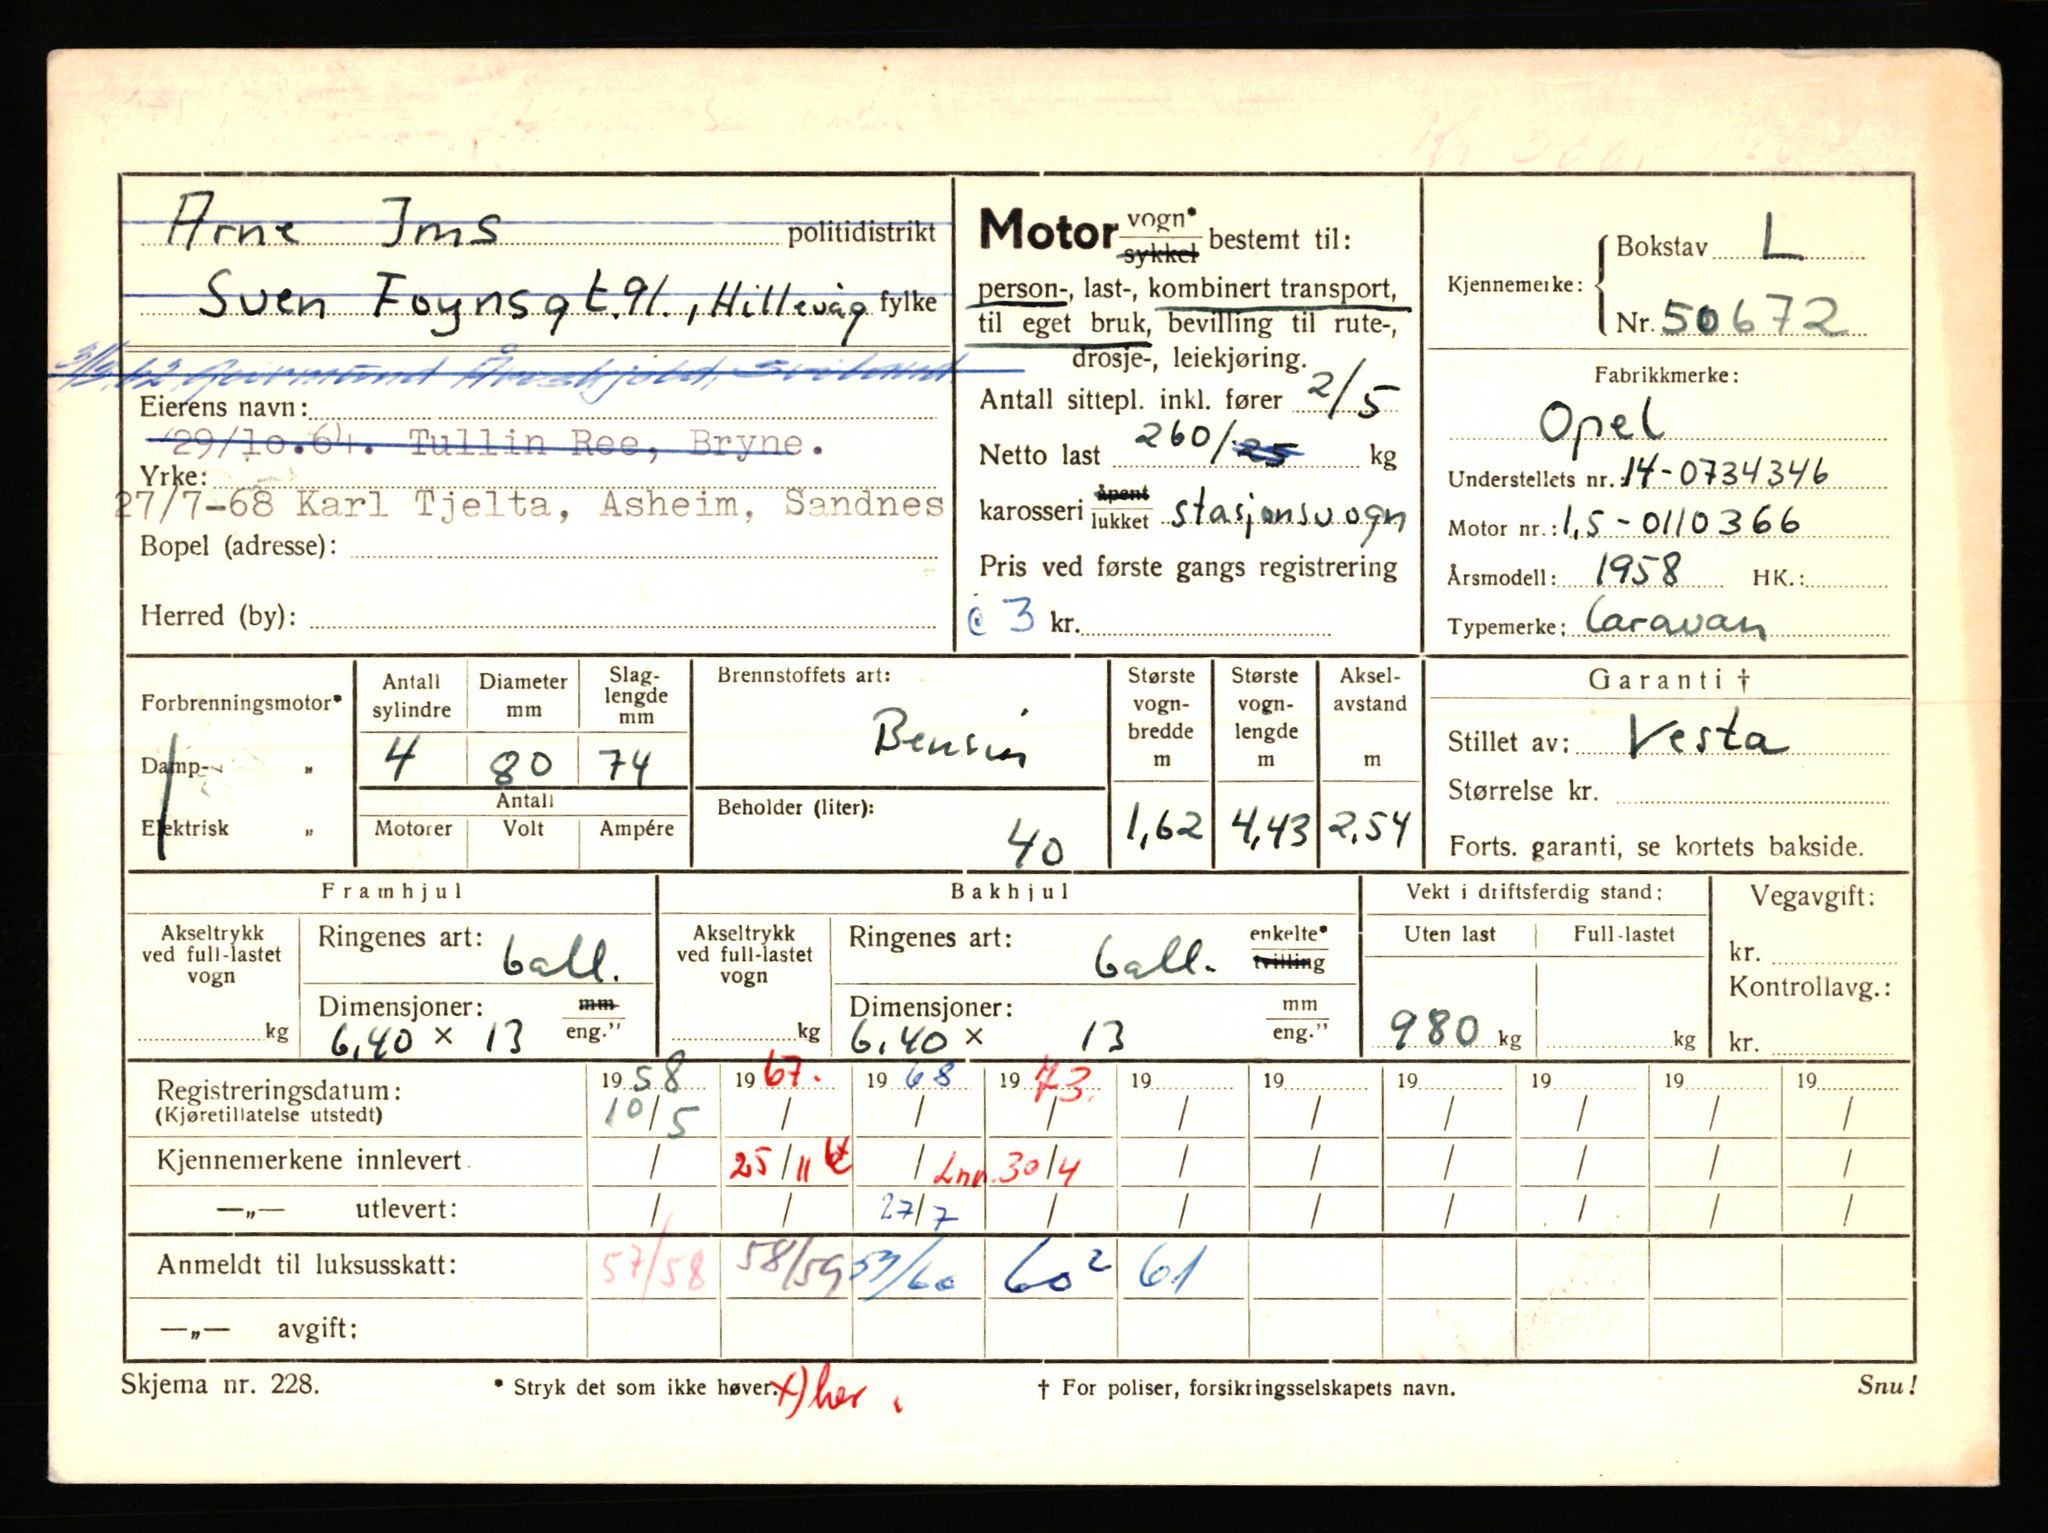 Arne Ims politidistrikt
Sven Foynsgt. 91., Hillevåg fylke
Geirmund
Eierens navn:
29/10.64. Tullin Ree, Bryne.
Yrke:
27/7-68 Karl Tjelta, Asheim, Sandnes
Bopel (adresse):
Herred (by):
Motor vogn* sykkel bestemt til:
person-, last-, kombinert transport,
til eget bruk, bevilling til rute-,
drosje-, leiekjøring.
Antall sittepl. inkl. fører 2/5
Netto last 260/25 kg
karosseri åpent lukket stasjonsvogn
Pris ved første gangs registrering
3 kr.
Kjennemerke: Bokstav L
Nr. 50672
Fabrikkmerke:
Opel
Understellets nr.: 14-0734346
Motor nr.: 1,5-0110366
Årsmodell: 1958 HK.:
Typemerke: Caravan
Forbrenningsmotor*
Damp- „
Elektrisk „
Antall sylindre Diameter mm Slaglengde mm
4 80 74
Antall
Motorer Volt Ampére
Brennstoffets art:
Bensin
Beholder (liter):
40
Største vogn-bredde m Største vogn-lengde m Aksel-avstand m
1,62 4,43 2,54
Garanti †
Stillet av: Vesta
Størrelse kr.
Forts. garanti, se kortets bakside.
Framhjul
Akseltrykk ved full-lastet vogn
kg
Ringenes art: ball.
Dimensjoner: mm eng.”
6,40 x 13
Bakhjul
Akseltrykk ved full-lastet vogn
kg
Ringenes art: ball. enkelte* tvilling
Dimensjoner: mm eng.”
6,40 x 13
Vekt i driftsferdig stand:
Uten last Full-lastet
980 kg kg
Vegavgift:
kr.
Kontrollavg.:
kr.
Registreringsdatum: 1958 1967. 1968 1973. 19 19 19 19 19 19
(Kjøretillatelse utstedt) 10/5 / / / / / / / / /
Kjennemerkene innlevert / 25/11 / Lnr. 30/4 / / / / / /
—„— utlevert: / / 27/7 / / / / / / /
Anmeldt til luksusskatt: 57/58 58/59 59/60 60² 61
—„— avgift:
Skjema nr. 228. * Stryk det som ikke høver. x) her † For poliser, forsikringsselskapets navn. Snu!